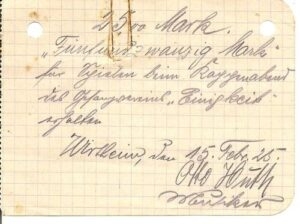 25,00 Mark.
"Fünfundzwanzig Mark"
für Spielen beim Kappenabend
des Gesangvereins „Einigkeit"
erhalten
Wirtheim, den 15. Febr. 25.
Otto Huth
Musiker